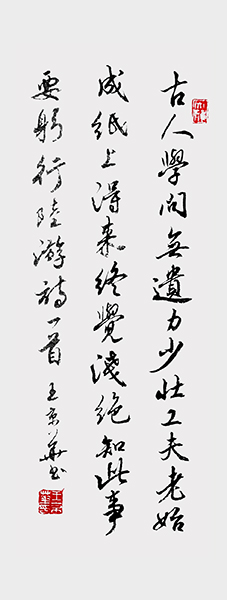 古人學問無遺力少壯工夫老始
成紙上得来終覺淺絕知此事
要躬行陸游詩一首王京華書